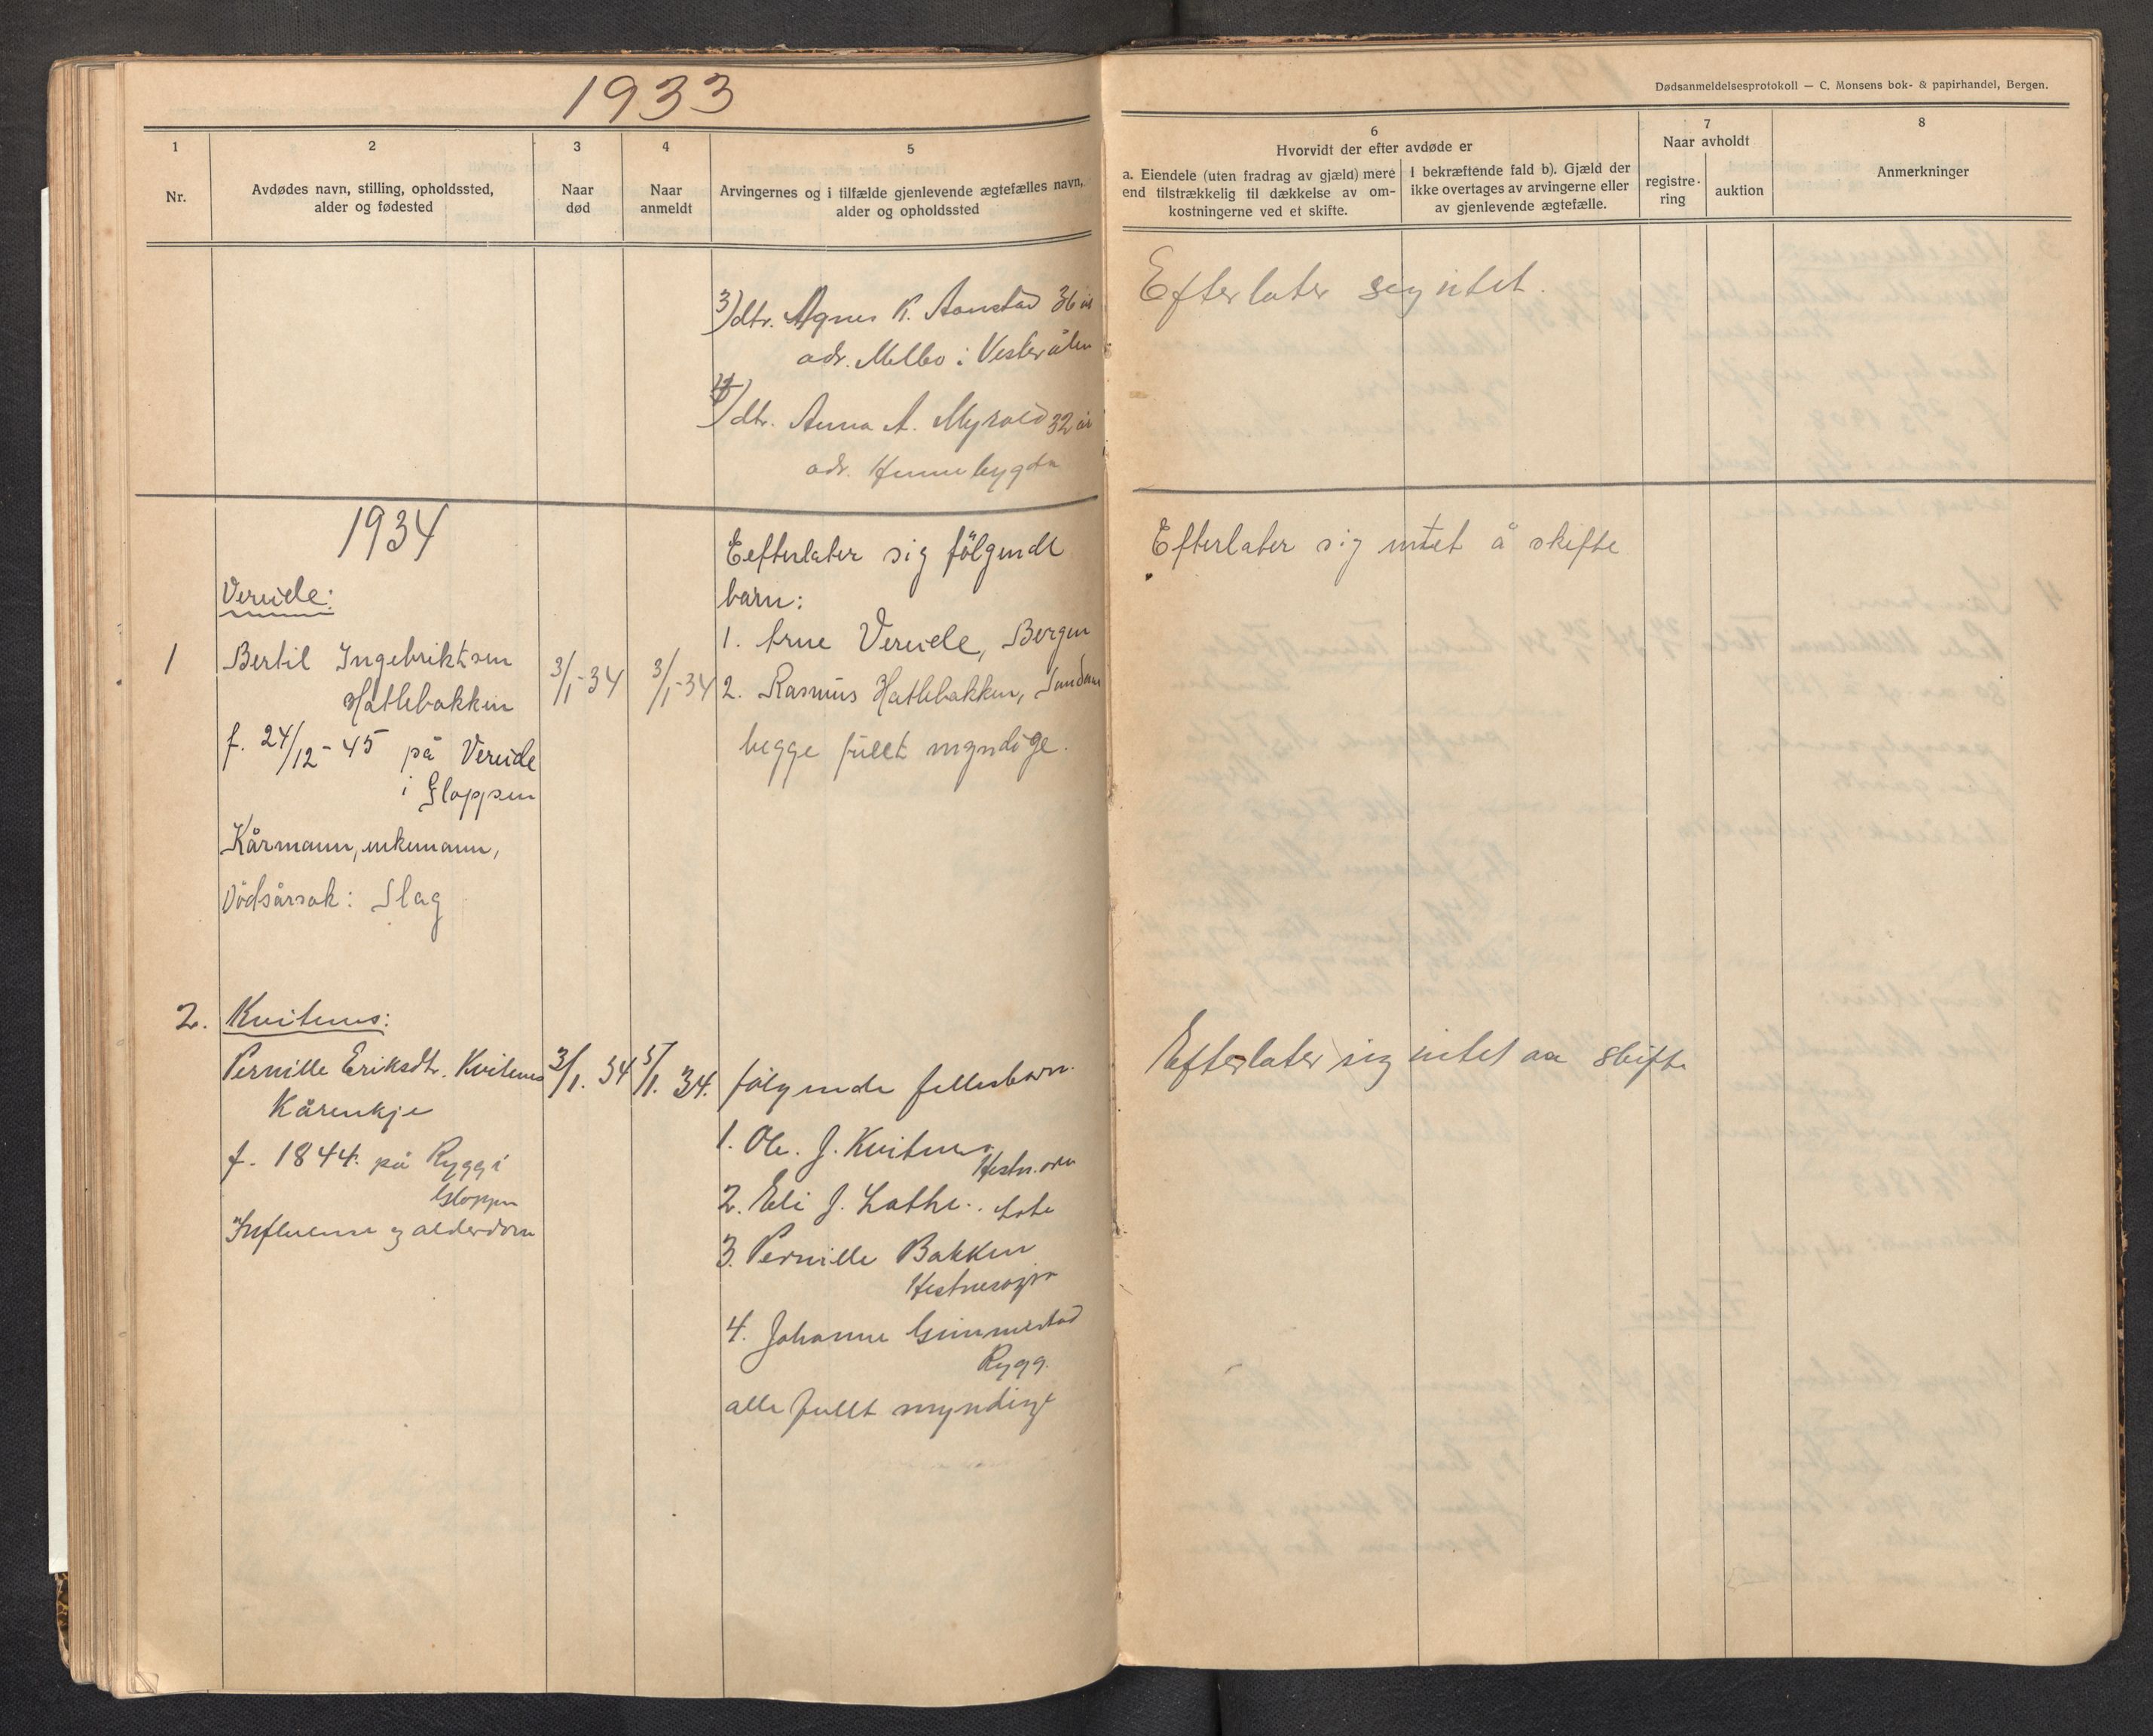 1933
Dødsanmeldelsesprotokoll — C. Monsens bok- & papirhandel, Bergen.
1
2
3
4
5
6
7
8
Nr.
Avdødes navn, stilling, opholdssted,
alder og fødested
Naar
død
Naar
anmeldt
Arvingernes og i tilfælde gjenlevende ægtefælles navn,
alder og opholdssted
Hvorvidt der efter avdøde er
a. Eiendele (uten fradrag av gjæld) mere
end tilstrækkelig til dækkelse av om-
kostningerne ved et skifte.
I bekræftende fald b). Gjæld der
ikke overtages av arvingerne eller
av gjenlevende ægtefælle.
Naar avholdt
registre-
ring
auktion
Anmerkninger
3) dtr. Agnes K. Aanstad 36 år
adr. Melbo i Vesterålen
4) dtr. Anna A. Myrold 32 år
adr. Hennebygda
Efterlater seg intet.
1934
Vereide:
1
Bertil Ingebriktsen
Hatlebakken
f. 24/12-45 på Vereide
i Gloppen
Kårmann, enkemann,
Dödsårsak: Slag
3/1-34
3/1-34
Eefterlater sig fölgende
barn:
1. Arne Vereide, Bergen
2. Rasmus Hatlebakken, Sandane
begge fullt myndige.
Efterlater sig intet å skifte
2.
Kvitenes:
Pernille Eriksdtr. Kvitenes
Kårenkje
f. 1844. på Rygg i
Gloppen
Influensa og alderdom
3/1. 34
5/1. 34.
følgende fellesbarn.
1. Ole. J. Kvitenes
2. Eli J. Lothe. Lote
3. Pernille Bakken
Hestnesøyra
4. Johanne Gimmestad
Rygg.
alle fullt myndige
Efterlater sig intet aa skifte